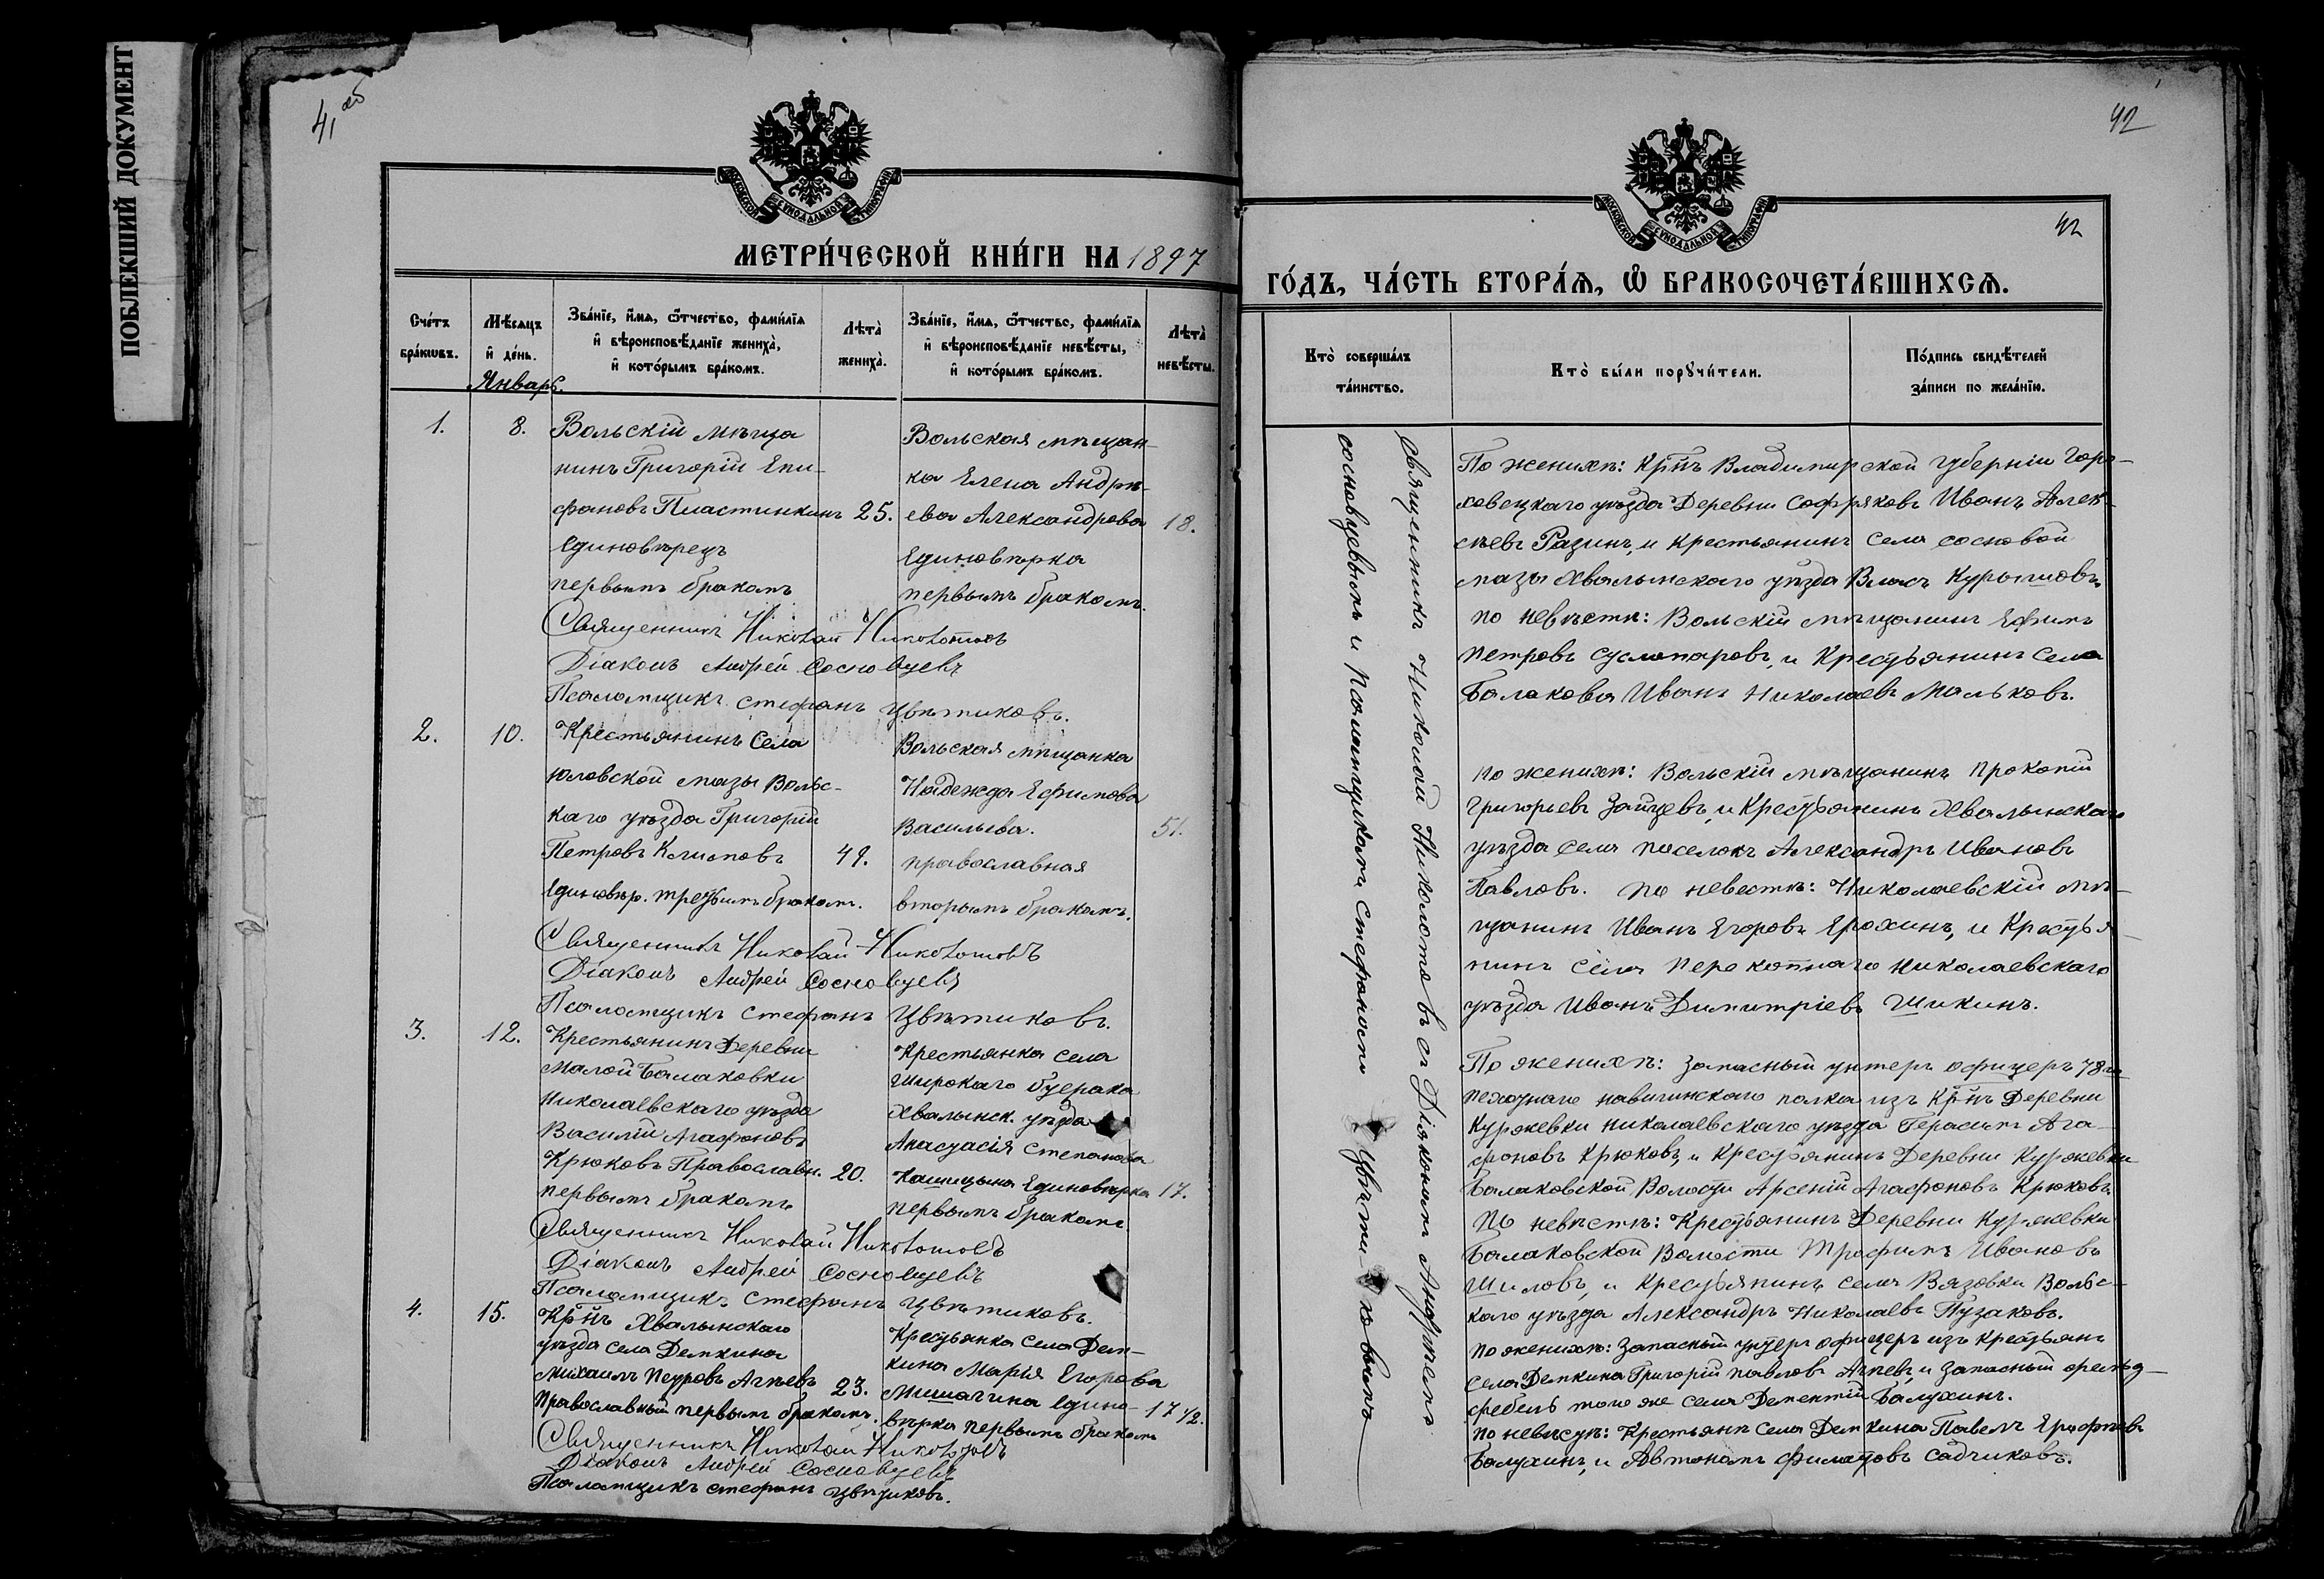 ПОБЛЕКШИЙ ДОКУМЕНТ
41 об
МОСКОВСКОЙ СУНОДАЛЬНОЙ ТИПОГРАФІИ
МЕТРИ́ЧЕСКОЙ КНИ́ГИ НА 1897
Сче́тъ бра́кѡвъ.
Мѣ́сяцъ и де́нь.
Зва́нїе, и́мя, ѻ́тчество, фами́лїя и вѣроисповѣ́данїе жениха̀, и кото́рымъ бра́комъ.
Лѣта̀ жениха̀.
Зва́нїе, и́мя, ѻ́тчество, фами́лїя и вѣроисповѣ́данїе невѣ́сты, и кото́рымъ бра́комъ.
Лѣта̀ невѣ́сты.
Январь.
1. 8.
Вольскій мѣща
нинъ Григорій Епи-
фановъ Пластинкинъ 25.
Единовѣрецъ
первымъ бракомъ
Вольская мѣщан-
ка Елена Андрѣ-
ева Александрова 18.
Единовѣрка
первымъ бракомъ.
Священникъ Николай
Діаконъ Андрей Сосновцевъ
Псаломщикъ Стефанъ Цвѣтиковъ.
2. 10.
Крестьянинъ Села
Юловской мазы Вольс-
каго уѣзда Григорій
Петровъ Климовъ 49.
Единовѣр. третьимъ бракомъ.
Вольская мѣщанка
Надежда Ефимова
Васильева. 51.
православная
вторымъ бракомъ.
Священникъ Николай
Діаконъ Андрей Сосновцевъ
Псаломщикъ Стефанъ Цвѣтиковъ.
3. 12.
Крестьянинъ Деревни
Малой Балаковки
Николаевскаго уѣзда
Василій Агафоновъ
Крюковъ Православн. 20.
первымъ бракомъ
Крестьянка села
Широкаго буерака
Хвалынск. уѣзда
Анастасія Степанова
Кашицына Единовѣрка 17.
первымъ бракомъ
Священникъ Николай
Діаконъ Андрей Сосновцевъ
Псаломщикъ Стефанъ Цвѣтиковъ.
4. 15.
Кр̅нъ Хвалынскаго
уѣзда села Демкина
Михаилъ Петровъ Агѣевъ 23.
Православный первымъ бракомъ.
Крестьянка села Дем-
кина Марія Егорова
Мишагина едино- 17 1/2.
вѣрка первымъ бракомъ
Священникъ Николай
Діаконъ Андрей Сосновцевъ
Псаломщикъ Стефанъ Цвѣтиковъ.
42
МОСКОВСКОЙ СУНОДАЛЬНОЙ ТИПОГРАФІИ
42
ГО́ДЪ, ЧА́СТЬ ВТОРА́Я, Ѽ БРАКОСОЧЕТА́ВШИХСЯ.
Кто̀ соверша́лъ та́инство.
Кто̀ бы́ли порꙋчи́тели.
По́дпись свидѣ́телей за́писи по жела́нїю.
Священникъ Николай съ Діакономъ Андреемъ
Сосновцевымъ и Псаломщикомъ Стефаномъ Цвѣтиковымъ
По женихѣ: Кр̅нъ Владимирской губерніи Горо-
ховецкаго уѣзда Деревни Софряковъ Иванъ Алек-
сѣевъ Разинъ, и крестьянинъ села сосновой
мазы Хвалынскаго уѣзда Власъ Курышовъ.
по невѣстѣ: Вольскій мѣщанинъ Ефимъ
Петровъ Суслопаровъ, и Крестьянинъ села
Балакова Иванъ Николаевъ Мальковъ.
по женихѣ: Вольскій мѣщанинъ Прокопій
Григорьевъ Зайцевъ, и Крестьянинъ Хвалынскаго
уѣзда села поселокъ Александръ Ивановъ
Павловъ. по невестѣ: Николаевскій мѣ-
щанинъ Иванъ Егоровъ Ерохинъ, и Крестья
нинъ села Перекопнаго николаевскаго
уѣзда Иванъ Димитріевъ Шикинъ.
По женихѣ: Запасный унтеръ офицеръ 78го
пехотнаго навагинскаго полка изъ Кр̅нъ Деревни
Куржевки николаевскаго уѣзда Герасимъ Ага-
фоновъ Крюковъ, и Крестьянинъ Деревни Куржевки
Балаковской Волости Арсеній Агафоновъ Крюковъ.
По невѣстѣ: Крестьянинъ Деревни Куржевки
Балаковской Волости Трофимъ Ивановъ
Шиловъ, и Крестьянинъ села Вязовки Вольс-
каго уѣзда Александръ Николаевъ Пузаковъ.
По женихѣ: Запасный унтеръ офицеръ изъ Крестьянъ
села Демкина Григорій Павловъ Агѣевъ, и Запасный фельд-
фебель того же села Дементій Балухинъ.
По невѣстѣ: Крестьяне села Демкина Павелъ Ерофѣевъ
Балухинъ, и Автономъ Филатовъ Садчиковъ.